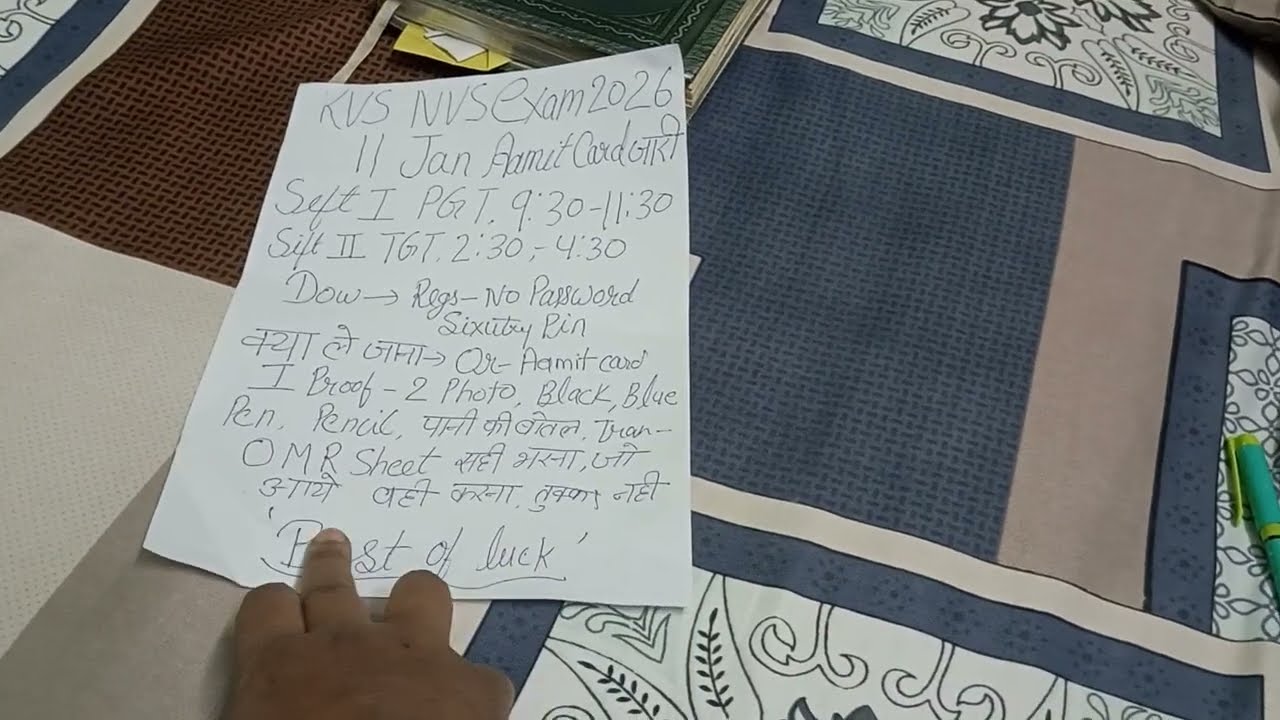 KVS NVS Exam 2026
11 Jan Aamit Card जारी
Seft I PGT. 9:30-11:30
Sift II TGT. 2:30,- 4:30
Dow→ Regs-No Password
Sixutry Pin
क्या ले जाना→ Qr- Aamit card
I Proof - 2 Photo, Black, Blue
Pen, Pencil, पानी की बोतल, Tran-
OMR Sheet सही भरना, जो
आये वही करना, तुक्का नही
'Best of luck'